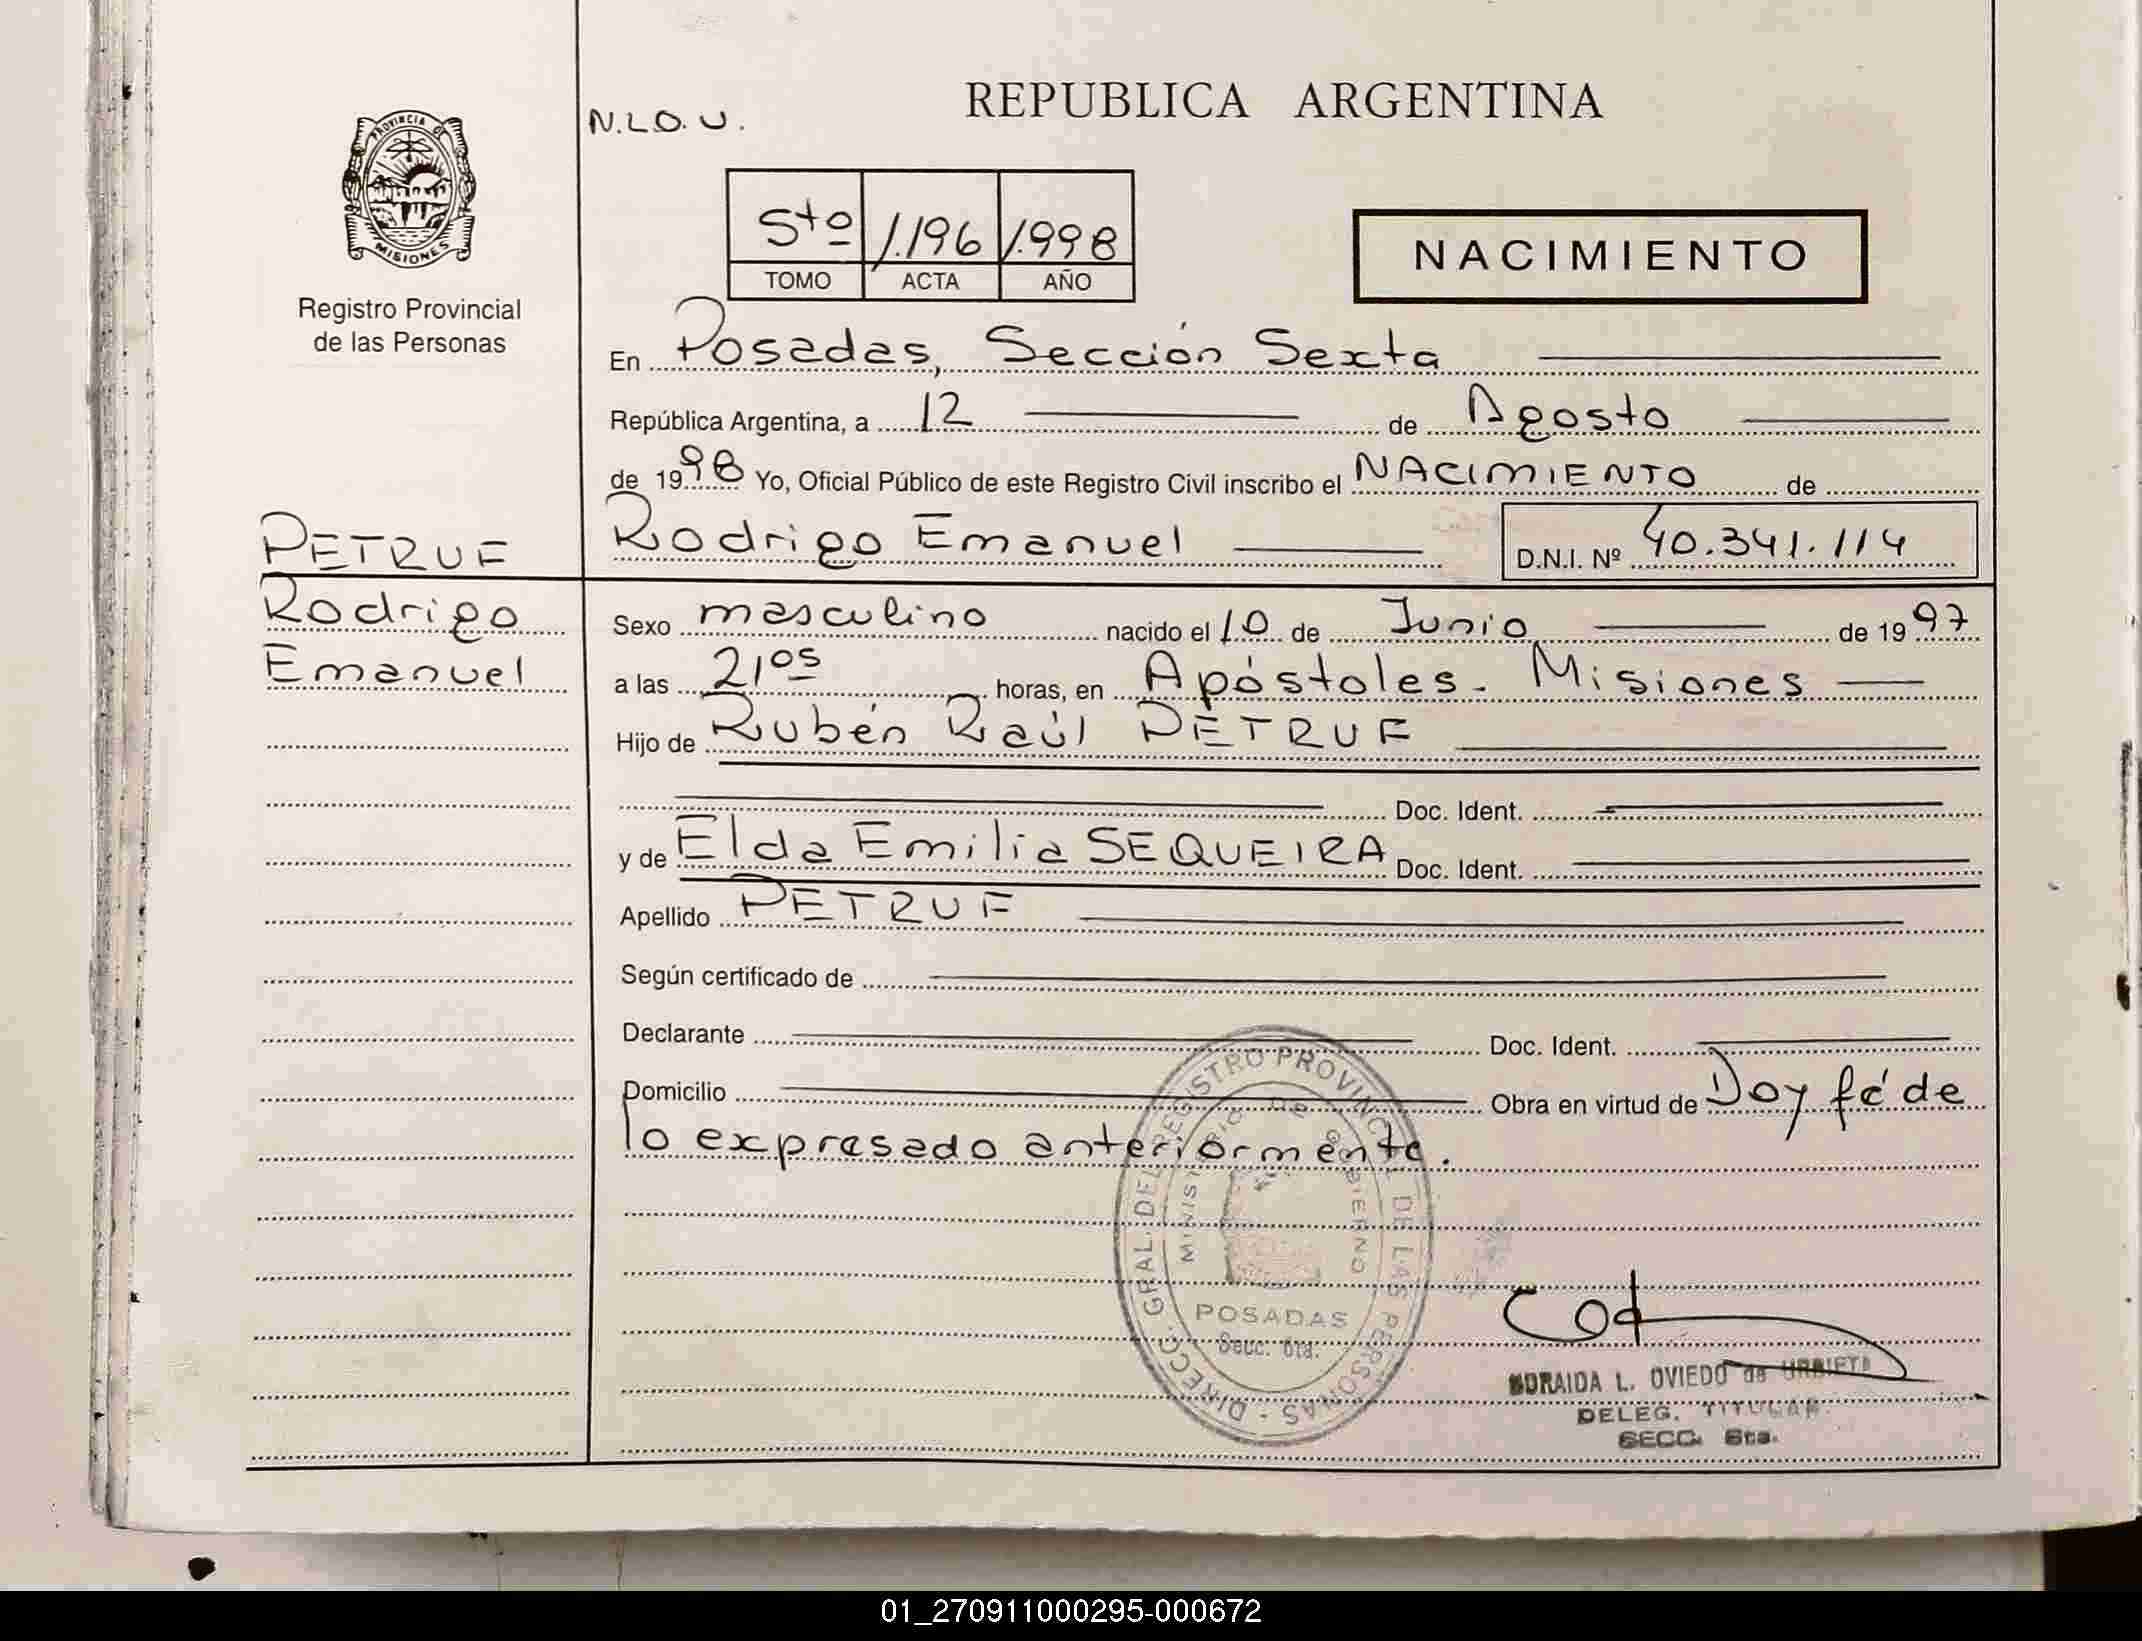 N.L.O.U.
REPUBLICA ARGENTINA
PROVINCIA DE MISIONES
5to 1.196 1.998
TOMO ACTA AÑO
NACIMIENTO
Registro Provincial
de las Personas
En Posadas, Sección Sexta
República Argentina, a 12 de Agosto
de 1998 Yo, Oficial Público de este Registro Civil inscribo el NACIMIENTO de
PETRUF
Rodrigo Emanuel D.N.I. Nº 40.341.114
Rodrigo
Emanuel
Sexo masculino nacido el 10 de Junio de 1997
a las 21os horas, en Apóstoles - Misiones
Hijo de Rubén Raúl PETRUF
Doc. Ident.
y de Elda Emilia SEQUEIRA Doc. Ident.
Apellido PETRUF
Según certificado de
Declarante Doc. Ident.
Domicilio Obra en virtud de Doy fé de
lo expresado anteriormente.
DIRECC. GRAL. DEL REGISTRO PROVINCIAL DE LAS PERSONAS
MINISTERIO DE GOBIERNO
POSADAS
Secc. 6ta.
L. OVIEDO de URBIETA
DELEG. TITULAR
SECC. 6ta.
01_270911000295-000672